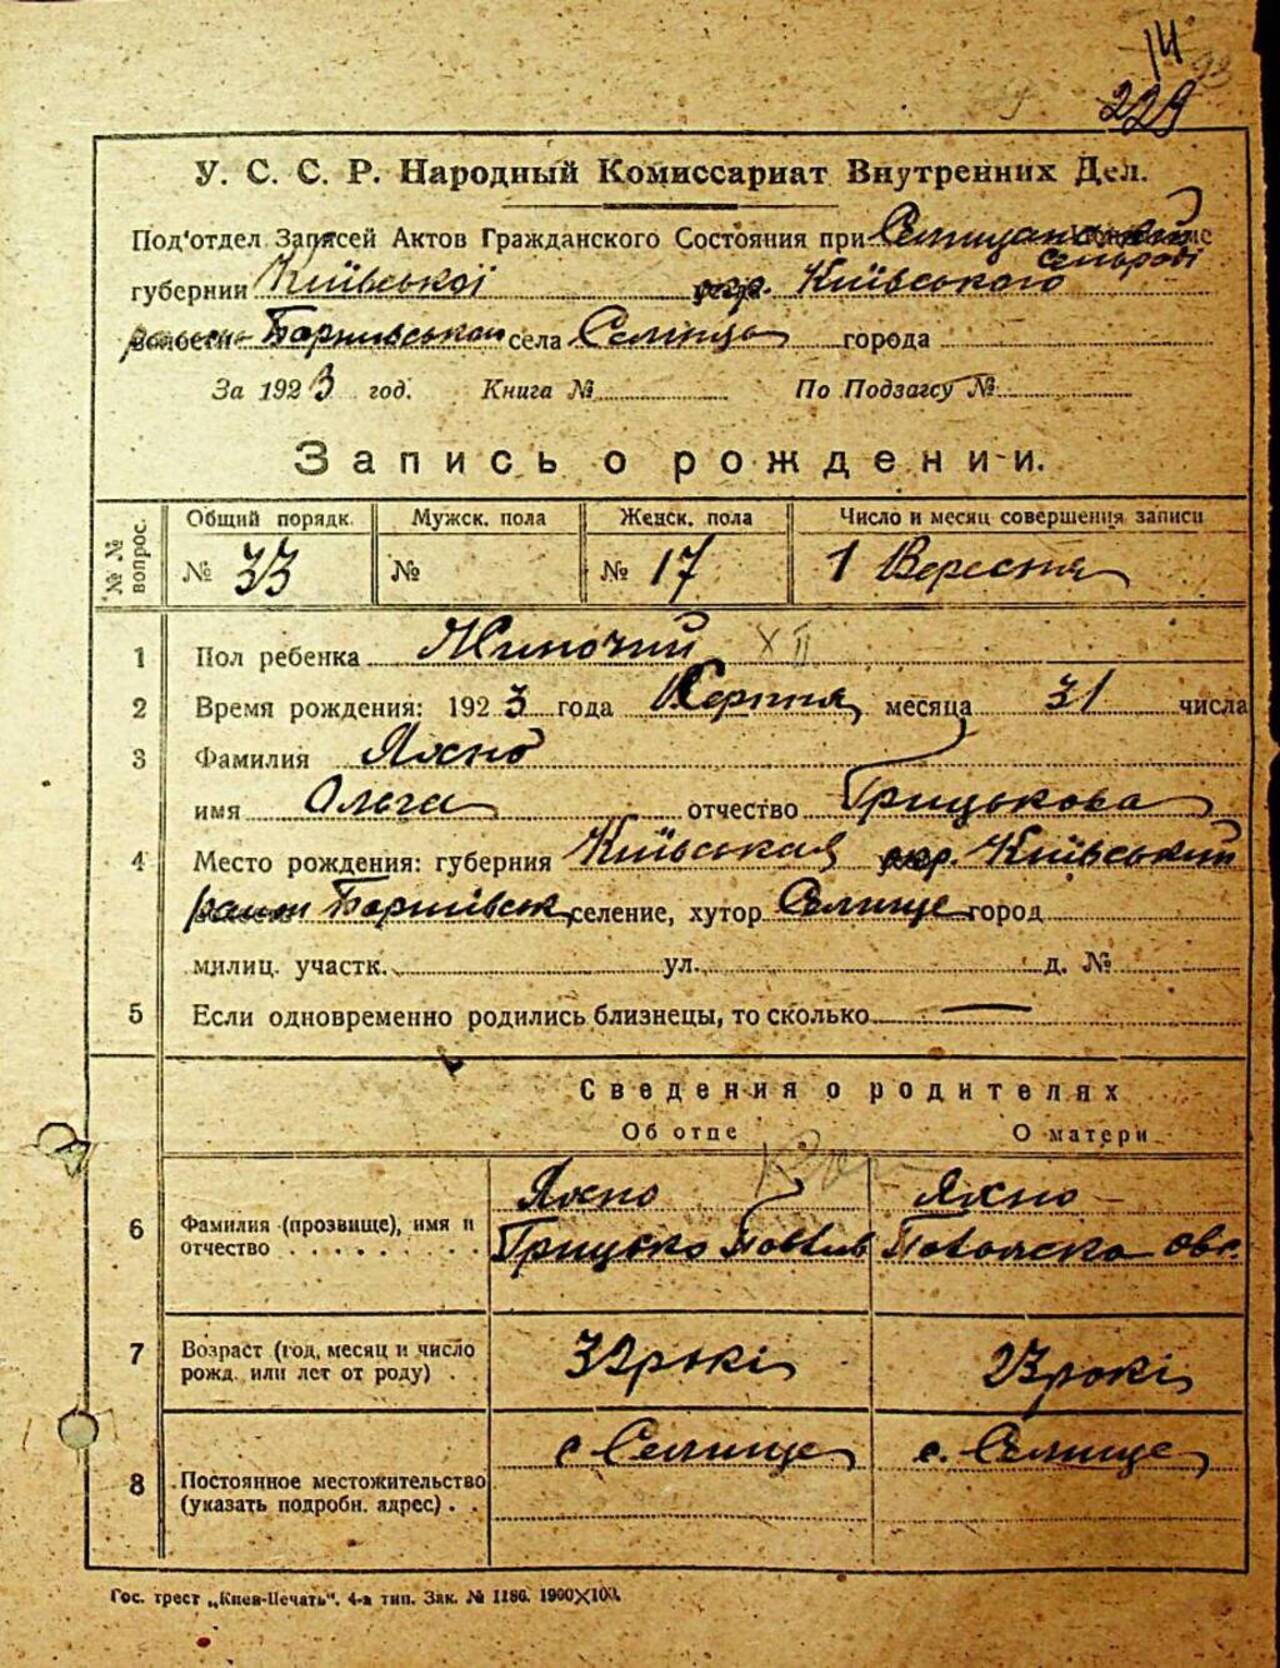 14
229
У. С. С. Р. Народный Комиссариат Внутренних Дел.
Под'отдел Записей Актов Гражданского Состояния при Селищанський
сельраді
губернии Київської окр. Київського
района села Селище города
За 1923 год. Книга № По Подзагсу №
Запись о рождении.
№ № вопрос.
Общий порядк. Мужск. пола Женск. пола Число и месяц совершения записи
№ 33 № № 17 1 Вересня
1 Пол ребенка Жиночий X II
2 Время рождения: 1923 года Серпня месяца 31 числа
3 Фамилия Яхно
имя Ольга отчество Грицькова
4 Место рождения: губерния Київская окр. Київський
район селение, хутор Селище город
милиц. участк. ул. д. №
5 Если одновременно родились близнецы, то сколько —
Сведения о родителях
Об отце О матери
Яхно Яхно
6 Фамилия (прозвище), имя и отчество Грицько
7 Возраст (год, месяц и число рожд. или лет от роду) 32 рокі 23 рокі
с Селище с. Селище
8 Постоянное местожительство (указать подробн. адрес)
Гос. трест „Киев-Печать". 4-я тип. Зак. № 1186. 1900X100.